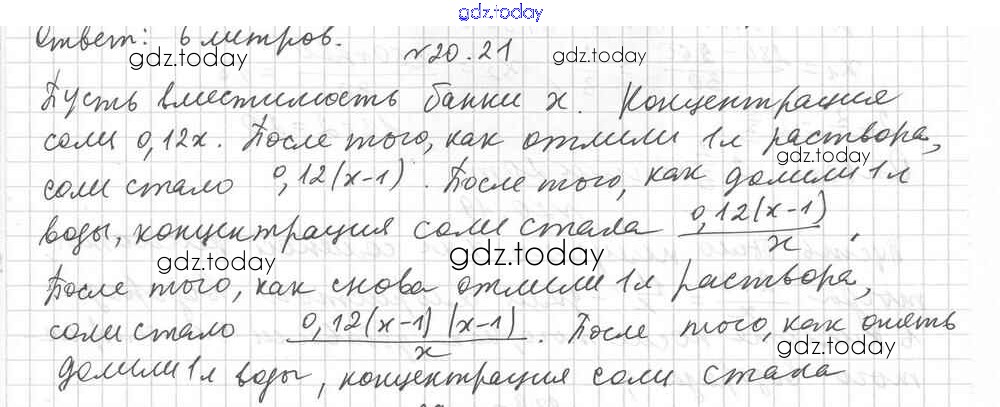 gdz.today
Ответ: 6 литров.
gdz.today
№20.21
gdz.today
Пусть вместимость банки x. Концентрация
соли 0,12x. После того, как отлили 1л раствора,
gdz.today
соли стало 0,12(x-1). После того, как долили 1л
gdz.today
воды, концентрация соли стала 0,12(x-1)/x.
gdz.today
gdz.today
После того, как снова отлили 1л раствора,
соли стало 0,12(x-1)(x-1)/x. После того, как опять
gdz.today
долили 1л воды, концентрация соли стала